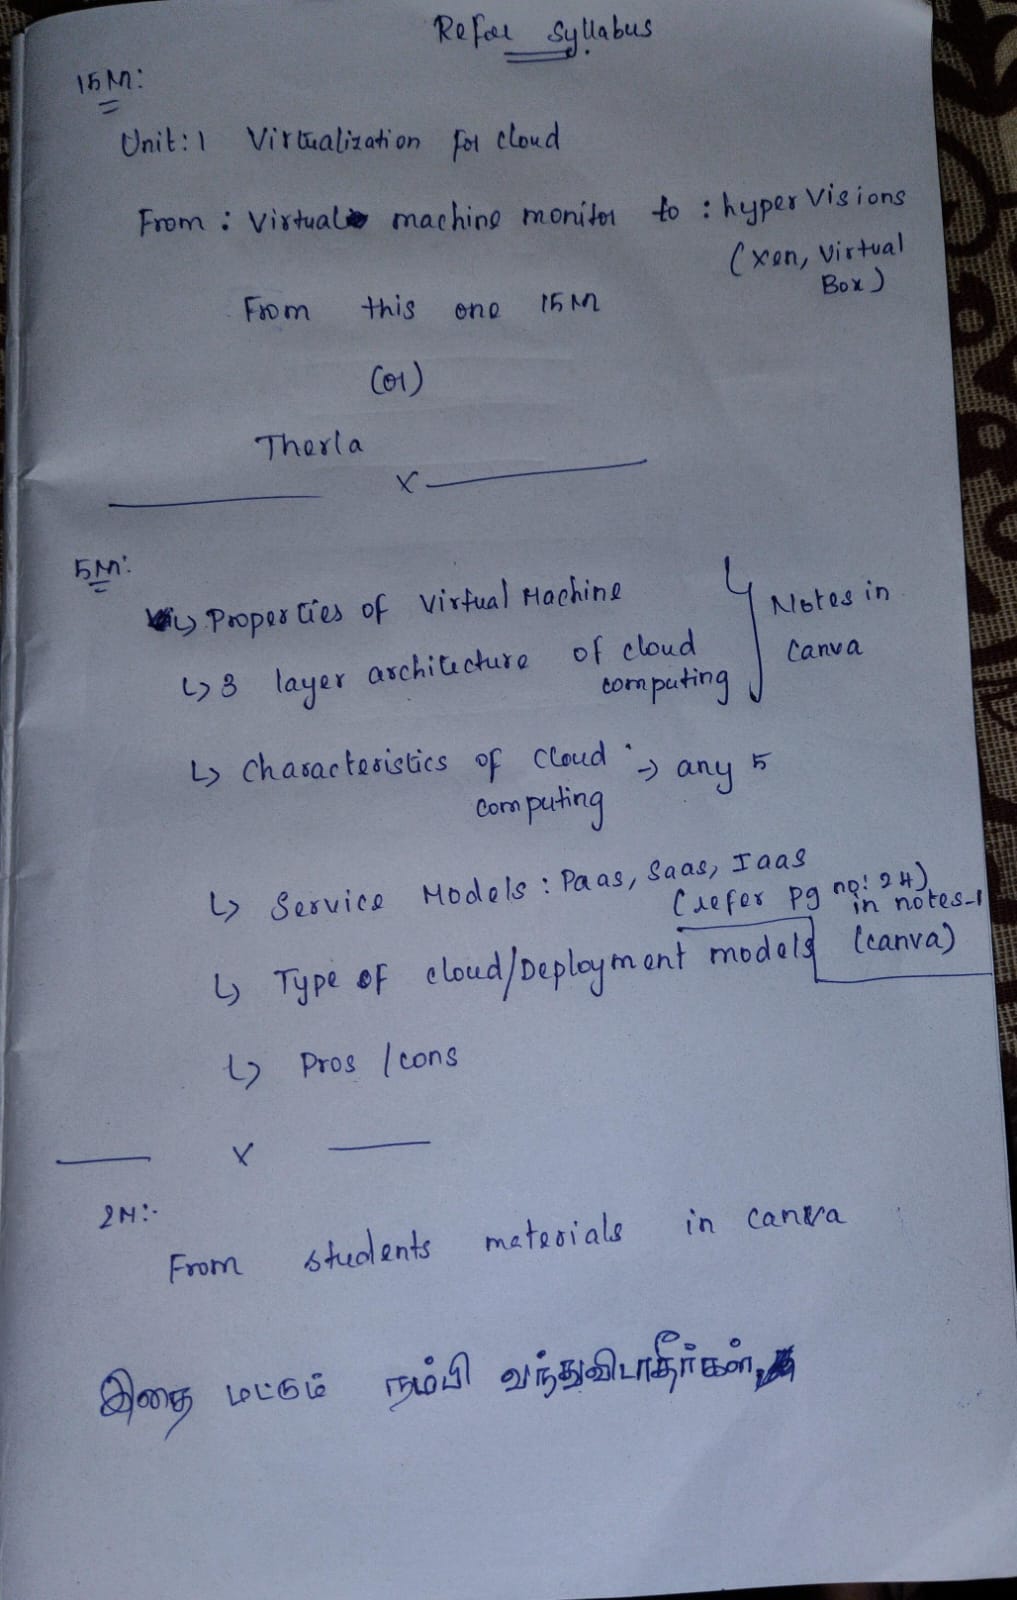 Refer Syllabus
15M:
Unit: 1 Virtualization for cloud
From : Virtual machine monitor to : hyper Visions
(xen, Virtual
Box)
From this one 15M
(or)
Therla
x
5M:
↳ Properties of Virtual Machine
↳ 3 layer architecture of cloud
computing
Notes in
Canva
↳ Characteristics of Cloud → any 5
computing
↳ Service Models : Paas, Saas, Iaas
(refer pg no: 24)
in notes-1
(canva)
↳ Type of cloud/Deployment models
↳ Pros / cons
x
2M:-
From students materials in canva
இதை மட்டும் நம்பி வந்துவிடாதீர்கள்